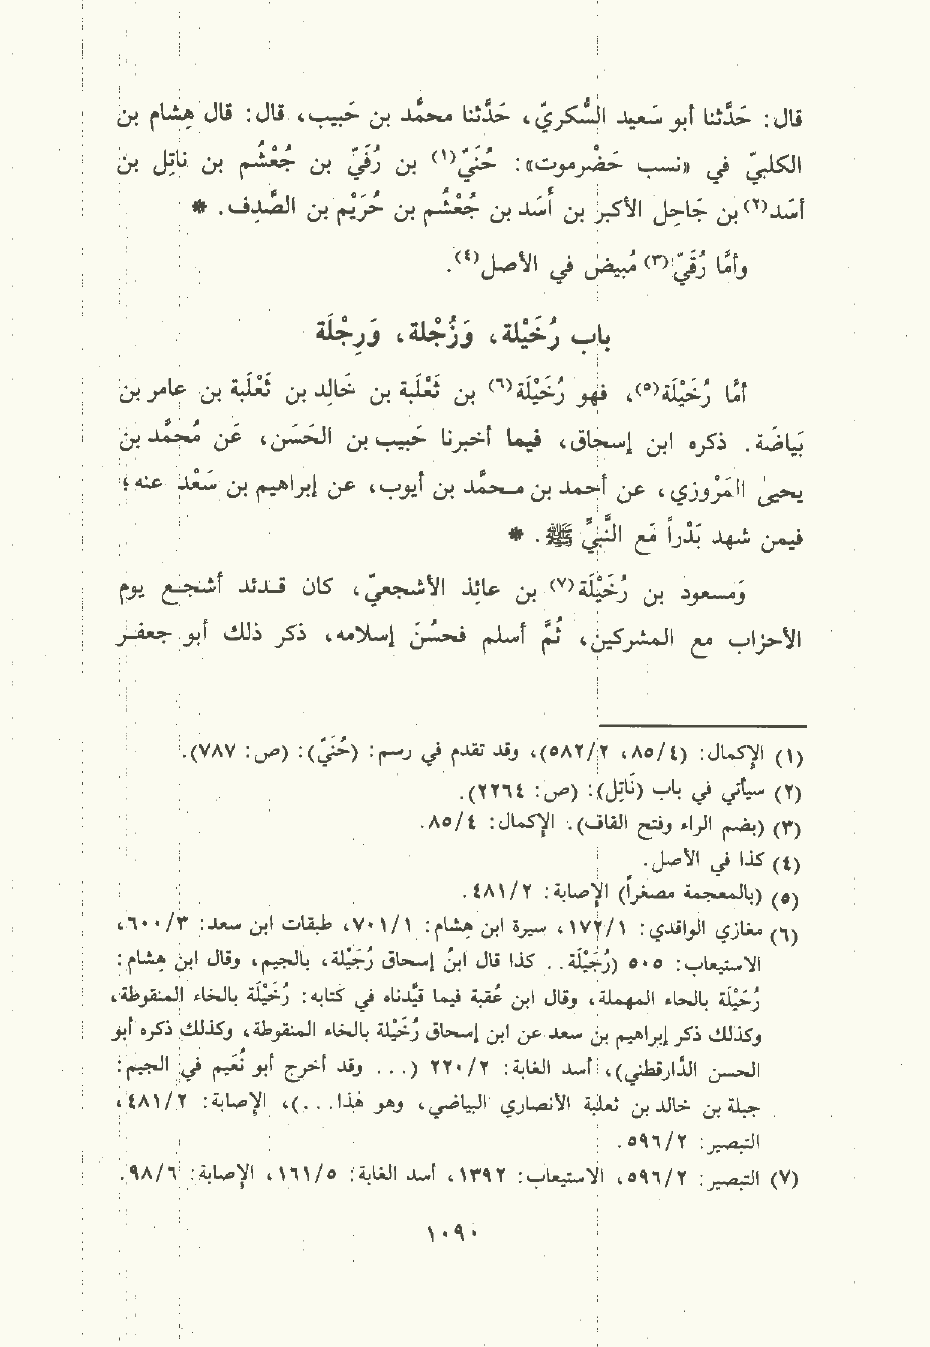 قال: حَدَّثنا أبو سَعيد السُّكريّ، حَدَّثنا محمَّد بن حَبيب، قال: قال هِشام بن
الكلبيّ في «نسب حَضْرموت»: حُنَيّ(١) بن رُقَيّ بن جُعْشُم بن ناتِل بن
أسَد(٢) بن جَاحِل الأكبر بن أَسَد بن جُعْشُم بن حُرَيْم بن الصَّدِف. *
وأمَّا رُقَيّ(٣) مُبيض في الأصل(٤).
باب رُخَيْلة، وَزُجْلة، وَرِجْلَة
أمَّا رُخَيْلَة(٥)، فهو رُخَيْلَة(٦) بن ثَعْلَبة بن خَالِد بن ثَعْلَبة بن عامر بن
بَياضَة. ذكره ابن إسحاق، فيما أخبرنا حَبيب بن الحَسَن، عَن مُحمَّد بن
يحيىٰ المَرْوزي، عن أحمد بن محمَّد بن أيوب، عن إبراهيم بن سَعْد عنه؛
فيمن شهد بَدْراً مَع النَّبيِّ ﷺ. *
وَمسعود بن رُخَيْلَة(٧) بن عائِذ الأشجعيّ، كان قائد أشجع يوم
الأحزاب مع المشركين، ثُمَّ أسلم فحسُنَ إسلامه، ذكر ذلك أبو جعفر
(١) الإكمال: (٤/ ٨٥، ٢/ ٥٨٢)، وقد تقدم في رسم: (حُنَيّ): (ص: ٧٨٧).
(٢) سيأتي في باب (نَاتِل): (ص: ٢٢٦٤).
(٣) (بضم الراء وفتح القاف). الإكمال: ٤/ ٨٥.
(٤) كذا في الأصل.
(٥) (بالمعجمة مصغراً) الإصابة: ٢/ ٤٨١.
(٦) مغازي الواقدي: ١/ ١٧٢، سيرة ابن هِشام: ١/ ٧٠١، طبقات ابن سعد: ٣/ ٦٠٠،
الاستيعاب: ٥٠٥ (رُجَيْلَة.. كذا قال ابنُ إسحاق رُجَيْلة، بالجيم، وقال ابن هِشام:
رُحَيْلَة بالحاء المهملة، وقال ابن عُقبة فيما قيَّدناه في كتابه: رُخَيْلَة بالخاء المنقوطة،
وكذلك ذكر إبراهيم بن سعد عن ابن إسحاق رُخَيْلة بالخاء المنقوطة، وكذلك ذكره أبو
الحسن الدَّارقطني)، أسد الغابة: ٢/ ٢٢٠ (... وقد أخرج أبو نُعَيم في الجيم:
جبلة بن خالد بن ثعلبة الأنصاري البياضي، وهو هٰذا...)، الإصابة: ٢/ ٤٨١،
التبصير: ٢/ ٥٩٦.
(٧) التبصير: ٢/ ٥٩٦، الاستيعاب: ١٣٩٢، أسد الغابة: ٥/ ١٦١، الإصابة: ٦/ ٩٨.
١٠٩٠